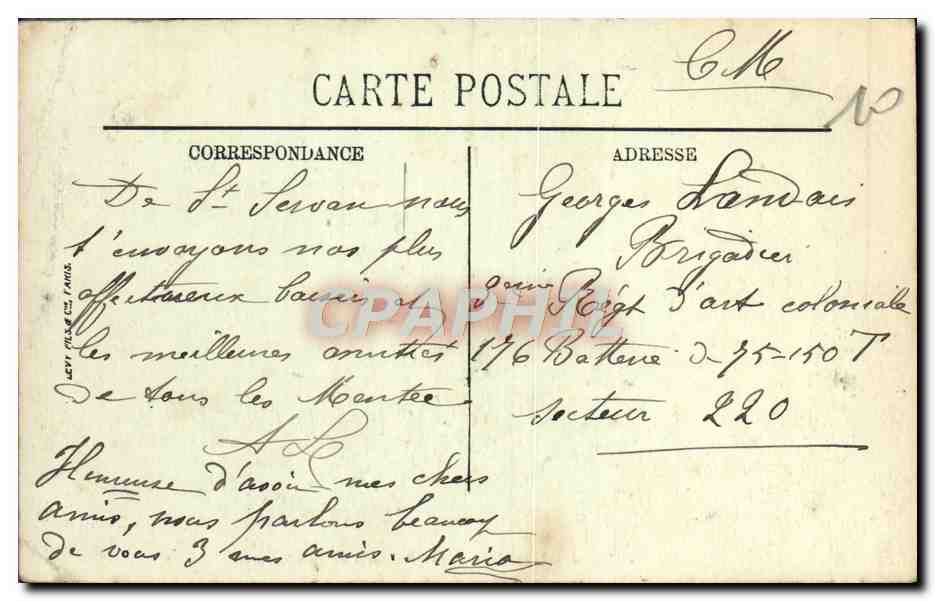 C M
CARTE POSTALE
CORRESPONDANCE
ADRESSE
De St Servan nous
t'envoyons nos plus
affectueux baisers et
les meilleures amitiés
de tous les Mentec
A L
Heureuse d'avoir mes chers
amis, nous parlons beaucoup
de vous 3 mes amis. Maria
Georges Landais
Brigadier
3eme Régt d'art coloniale
176 Batterie de 75-150 T
secteur 220
LEVY FILS & Cie, PARIS.
CPAPHIL